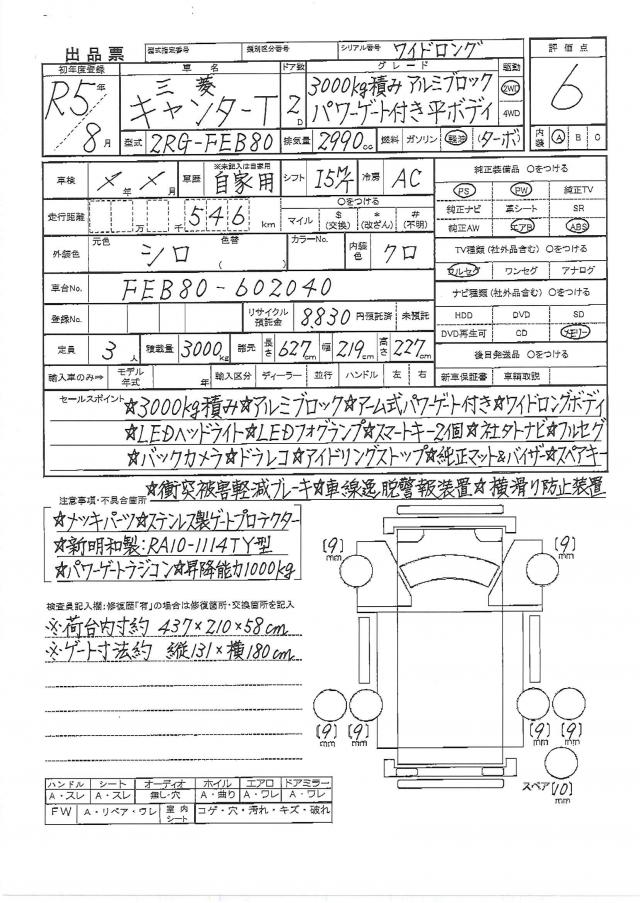 出品票 型式指定番号 類別区分番号 シリアル番号 ワイドロング 評価点
初年度登録 車名 ドア数 グレード 駆動
R5年/8月 三菱 キャンターT 2D 3000kg積み アルミブロック 2WD 6
パワーゲート付き平ボディ 4WD
型式 2RG-FEB80 排気量 2990cc 燃料 ガソリン 軽油 (ターボ) 内装 A B C
※未記入は自家用
車検 メ年メ月 車歴 自家用 シフト 15M/T 冷房 AC
走行距離 万 千 546 km マイル 〇をつける $(交換) *(改ざん) #(不明)
外装色 元色 シロ 色替 カラーNo. 内装色 クロ
車台No. FEB80-602040
登録No. リサイクル預託金 8,830 円預託済 未預託
定員 3人 積載量 3000kg 諸元 長さ 627cm 幅 219cm 高さ 227cm
輸入車のみ⇒ モデル年式 年 輸入区分 ディーラー 並行 ハンドル 左 右
純正装備品 〇をつける
PS PW 純正TV
純正ナビ 革シート SR
純正AW エアB ABS
TV種類(社外品含む) 〇をつける
フルセグ ワンセグ アナログ
ナビ種類(社外品含む) 〇をつける
HDD DVD SD
DVD再生可 CD メモリー
後日発送品 〇をつける
新車保証書 車輌取説
セールスポイント
☆3000kg積み☆アルミブロック☆アーム式パワーゲート付き☆ワイドロングボディ
☆LEDヘッドライト☆LEDフォグランプ☆スマートキー2個☆社外ナビ☆フルセグ
☆バックカメラ☆ドラレコ☆アイドリングストップ☆純正マット&バイザー☆スペアキー
☆衝突被害軽減ブレーキ☆車線逸脱警報装置☆横滑り防止装置
注意事項・不具合箇所
☆メッキパーツ☆ステンレス製ゲートプロテクター
☆新明和製:RA10-1114TY型
☆パワーゲートラジコン☆昇降能力1000kg
検査員記入欄:修復歴「有」の場合は修復箇所・交換箇所を記入
※荷台内寸約 437×210×58cm
※ゲート寸法約 縦131×横180cm
[9]mm [9]mm
[9]mm [9]mm [9]mm [9]mm
スペア [10]mm
ハンドル シート オーディオ ホイル エアロ ドアミラー
A・スレ A・スレ 無し・穴 A・曲り A・ワレ A・ワレ
FW A・リペア・ワレ 室内シート コゲ・穴・汚れ・キズ・破れ